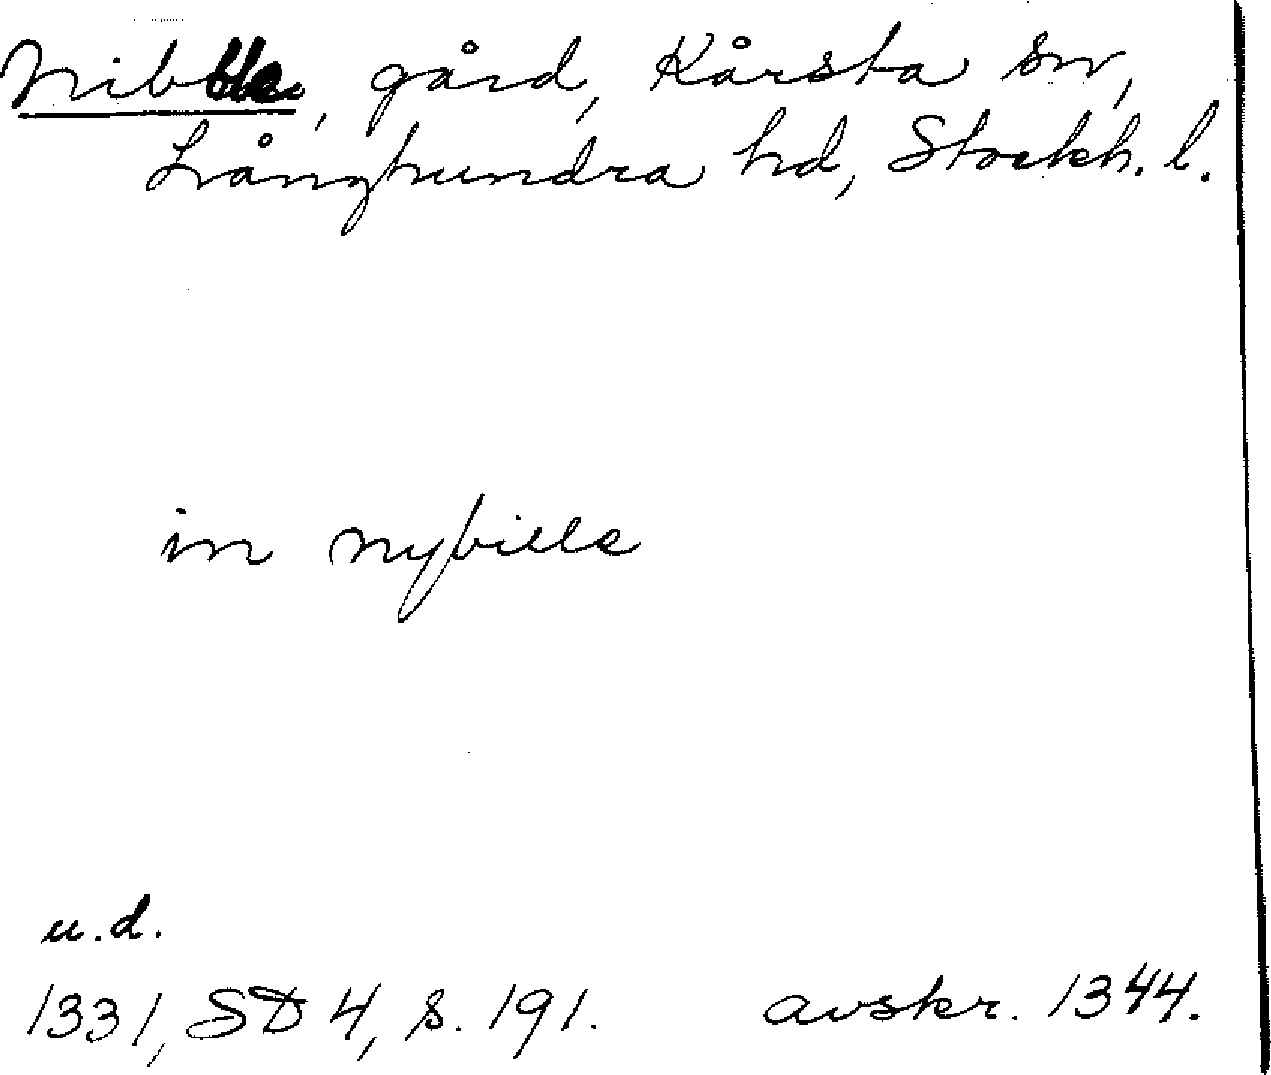 Nibble, gård, Kårsta sn,
Långhundra hd, Stockh. l.
in nybille
u.d.
1331, SD 4, s. 191. avskr. 1344.